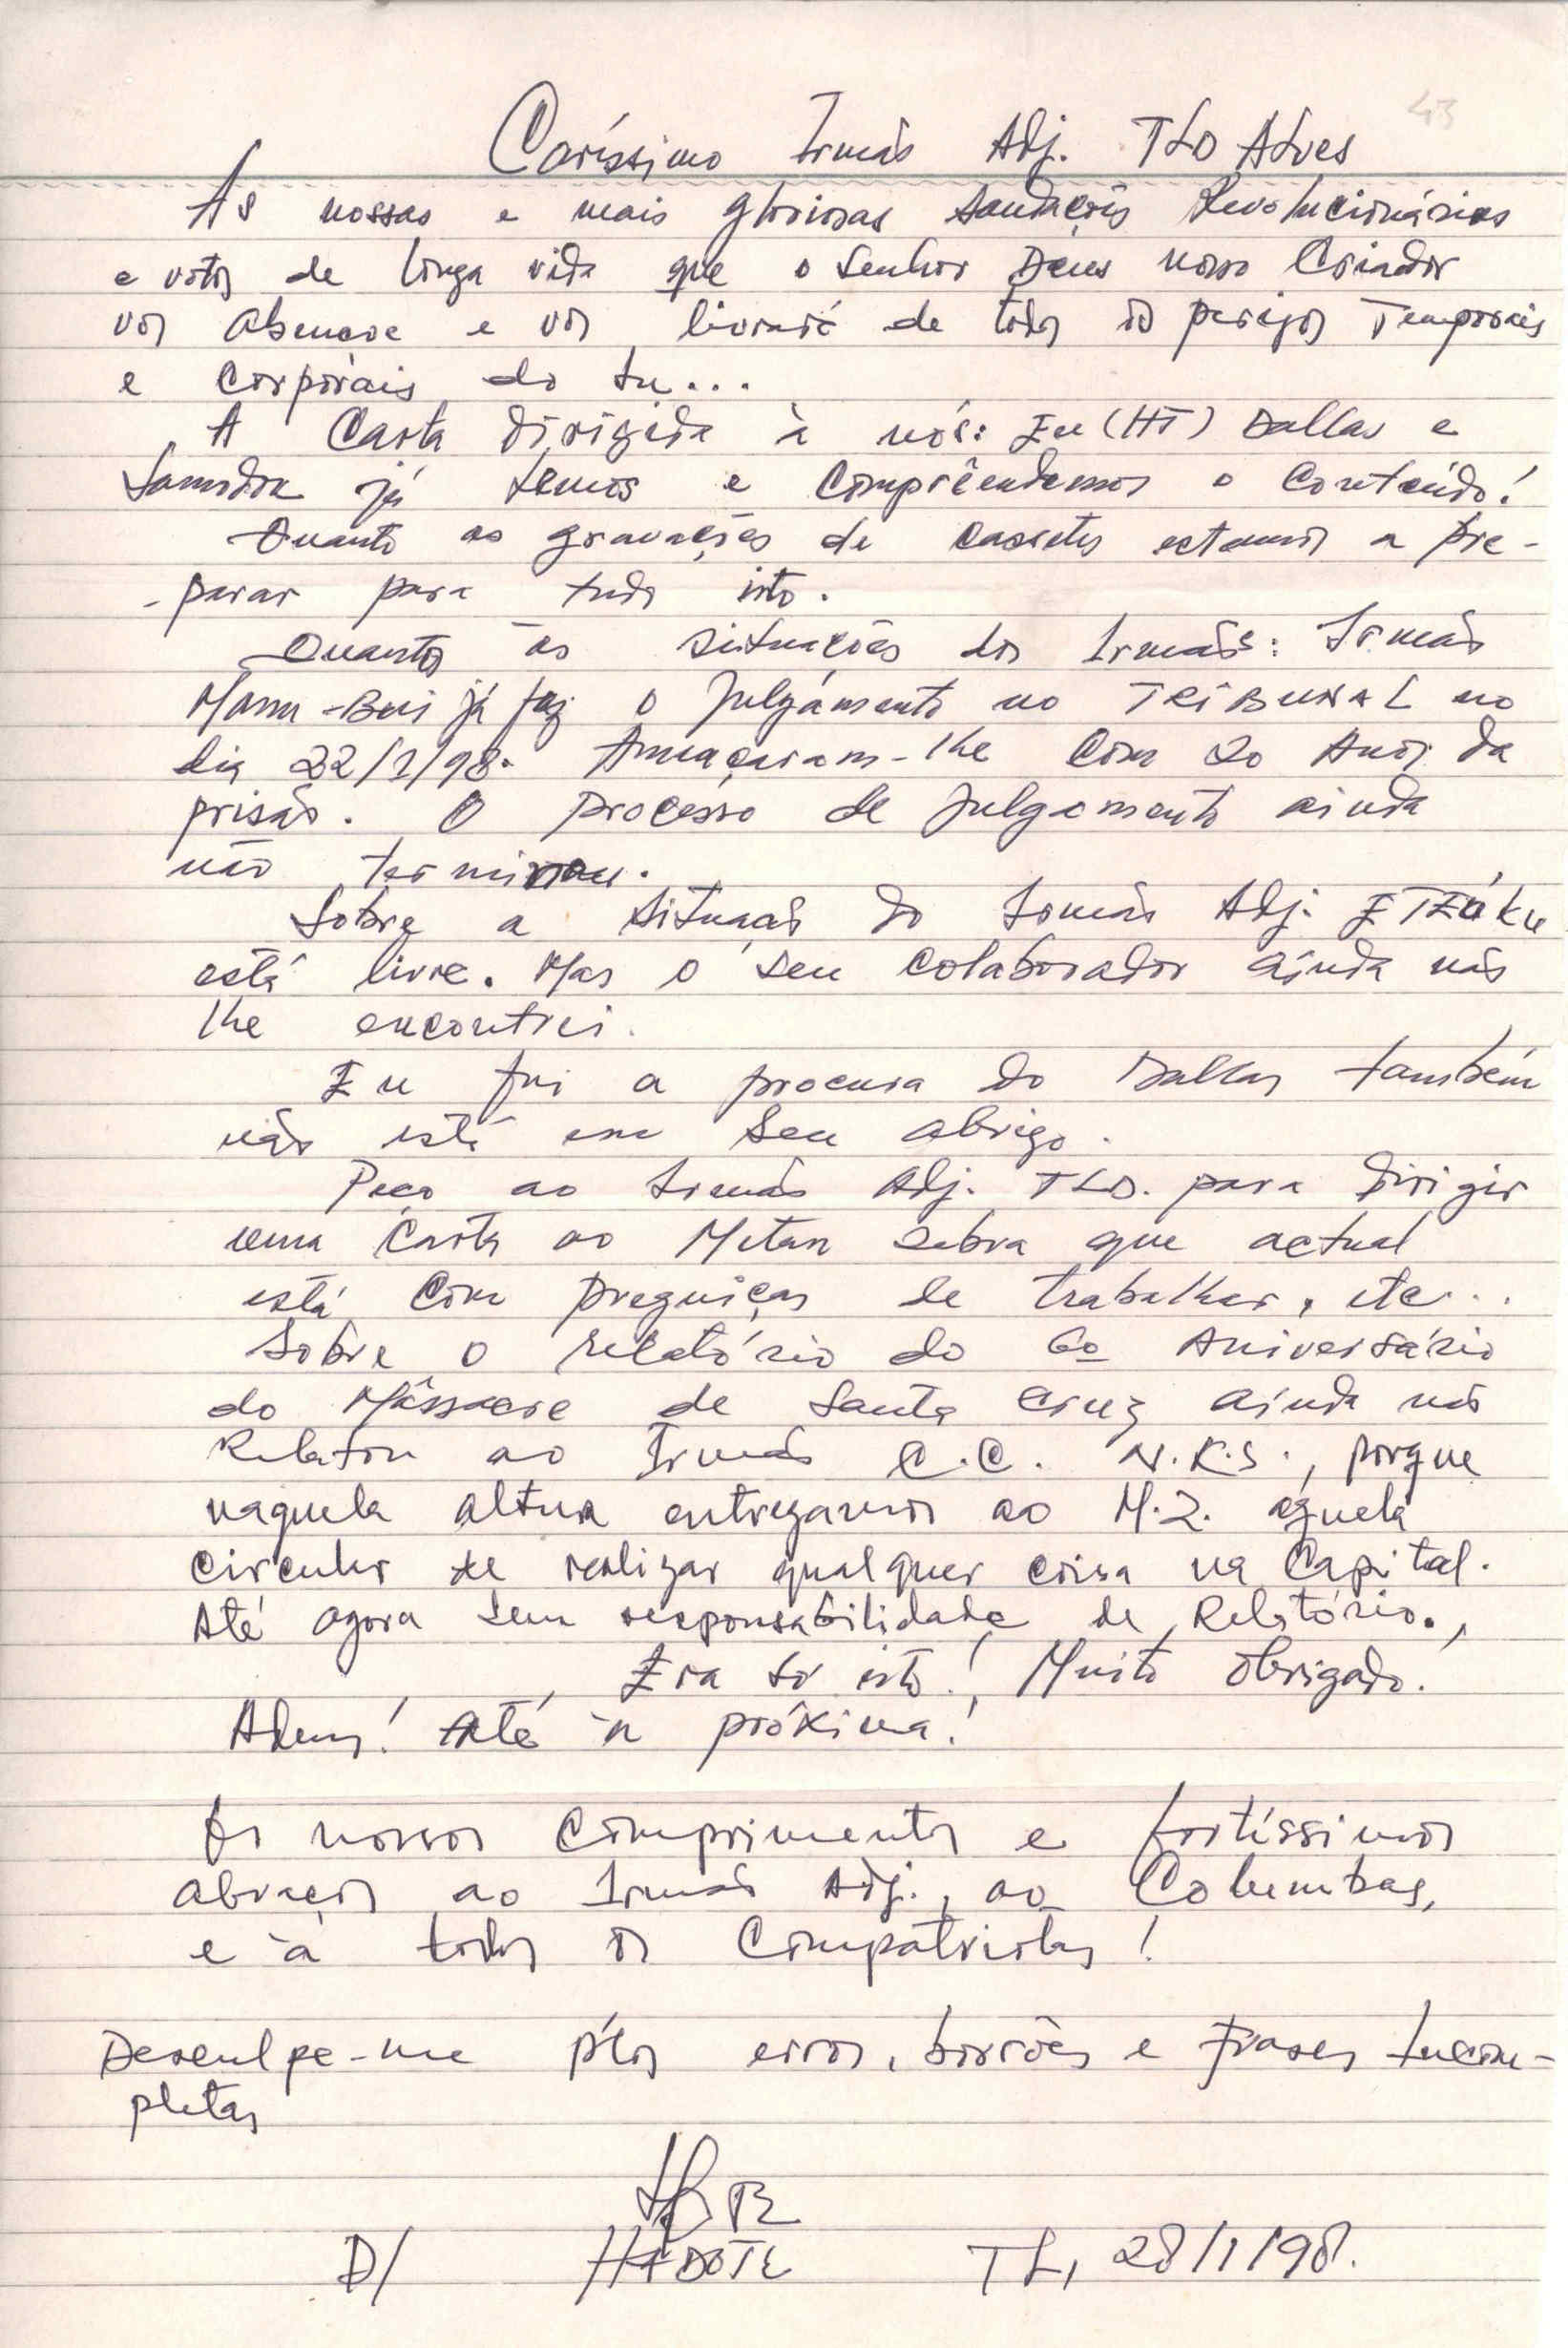 43
Caríssimo Irmão Adj. TLO Alves
As nossas e mais gloriosas saudações Revolucionárias
e votos de longa vida que o Senhor Deus nosso Criador
vos abençoe e vos livrará de todos os perigos Temporais
e corporais do
A Carta dirigida à nós: Eu (HT) Dallas e
já lemos e comprêendemos o conteúdo!
Quanto as gravações de cassetes estamos a pre-
-parar para tudo isto.
Quantos às situações dos Irmãos: Irmão
já fez o julgámento no TRIBUNAL no
dia 22/1/98. Ameaçaram-lhe com 20 Anos da
prisão. O processo de julgamento ainda
não terminou.
Sobre a situação do Irmão Adj.
está livre. Mas o seu colaborador ainda não
lhe encontrei.
Eu fui a procura do Dallas também
não está em seu abrigo.
Peço ao Irmão Adj. TLO. para dirigir
uma carta ao que actual
está com preguiças de trabalhar, etc...
Sobre o relatório do 6o Aniversário
do Mâssacre de Santa Cruz ainda não
Relatou ao Irmão C.C. N.K.S., porque
naquela altura entregamos ao M.Z. aquela
circular de realizar qualquer coisa na Capital.
Até agora sem responsabilidade de Relatório.,
Era só isto! Muito obrigado!
Adeus! Até à próxima!
Os nossos comprimentos e fortíssimos
abraços ao Irmão Adj., ao Columbas,
e à todos os Compatriotas!
Desculpe-me p'los erros, borrões e frases Incom-
pletas
D/ HADOTE TL, 28/1/98.